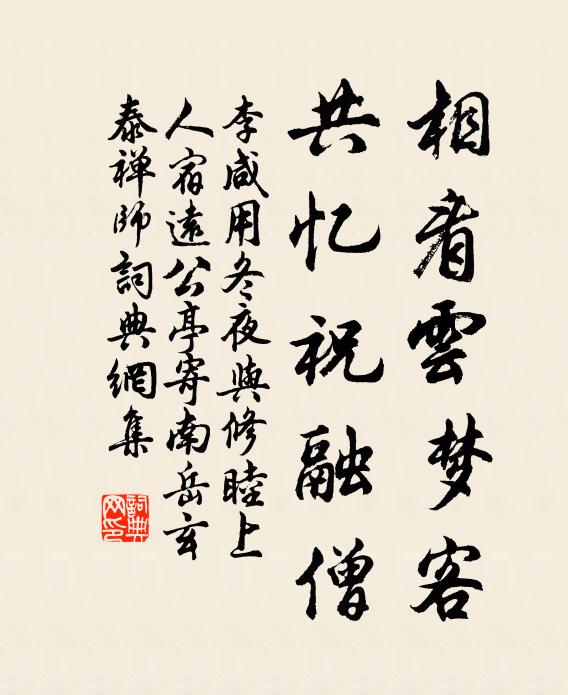 相看雲梦客
共忆祝融僧
李咸用冬夜與修睦上
人宿遠公亭寄南岳玄
泰禅师詞典網集
詞典
网印